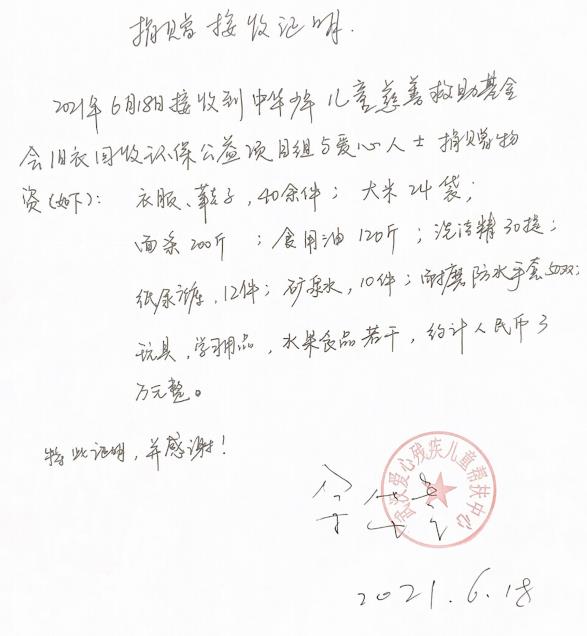 捐赠接收证明.
2021年6月18日接收到中华少年儿童慈善救助基金
会旧衣回收环保公益项目组与爱心人士捐赠物
资(如下): 衣服、鞋子,40余件; 大米24袋;
面条200斤 ; 食用油120斤 ; 洗洁精30提;
纸尿裤,12件; 矿泉水,10件; 耐磨防水手套50双;
玩具,学习用品,水果食品若干,约计人民币3
万元整。
特此证明,并感谢!
爱心残疾儿童帮扶中心
2021.6.18